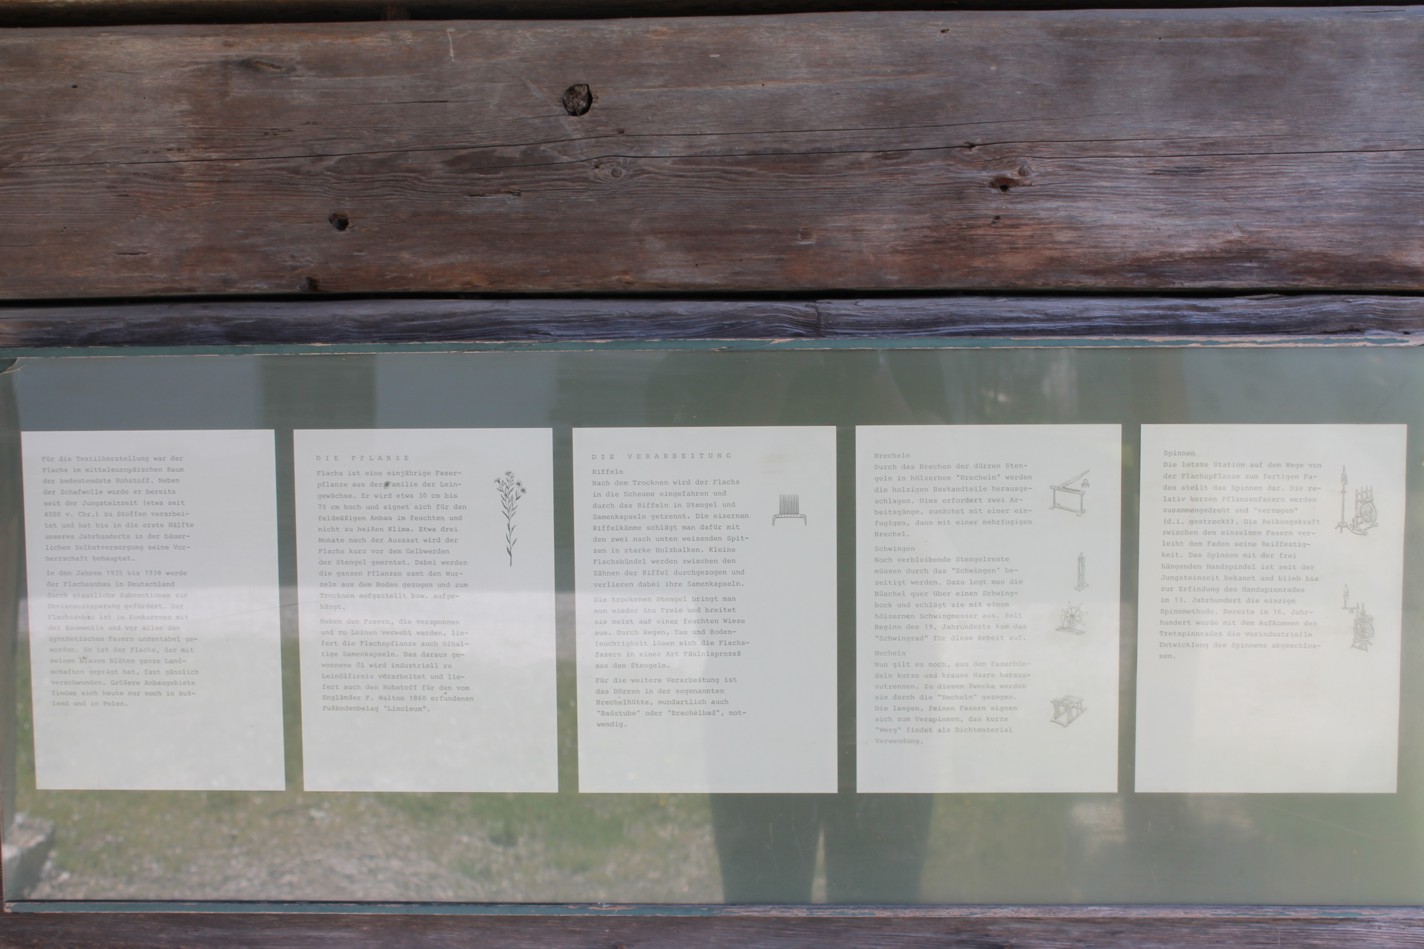 Für die Textilherstellung war der
Flachs im mitteleuropäischen Raum
der bedeutendste Rohstoff. Neben
der Schafwolle wurde er bereits
seit der Jungsteinzeit (etwa seit
4000 v. Chr.) zu Stoffen verarbei-
tet und hat bis in die erste Hälfte
unseres Jahrhunderts in der bäuer-
lichen Selbstversorgung seine Vor-
herrschaft behauptet.
In den Jahren 1935 bis 1938 wurde
der Flachsanbau in Deutschland
durch staatliche Subventionen zur
Devisenersparung gefördert. Der
Flachsanbau ist in Konkurrenz mit
der Baumwolle und vor allem den
synthetischen Fasern unrentabel ge-
worden. So ist der Flachs, der mit
seinen blauen Blüten ganze Land-
schaften geprägt hat, fast gänzlich
verschwunden. Größere Anbaugebiete
finden sich heute nur noch in Ruß-
land und in Polen.
DIE PFLANZE
Flachs ist eine einjährige Faser-
pflanze aus der Familie der Lein-
gewächse. Er wird etwa 30 cm bis
70 cm hoch und eignet sich für den
feldmäßigen Anbau im feuchten und
nicht zu heißen Klima. Etwa drei
Monate nach der Aussaat wird der
Flachs kurz vor dem Gelbwerden
der Stengel geerntet. Dabei werden
die ganzen Pflanzen samt den Wur-
zeln aus dem Boden gezogen und zum
Trocknen aufgestellt bzw. aufge-
hängt.
Neben den Fasern, die versponnen
und zu Leinen verwebt werden, lie-
fert die Flachspflanze auch ölhal-
tige Samenkapseln. Das daraus ge-
wonnene Öl wird industriell zu
Leinölfirnis verarbeitet und lie-
fert auch den Rohstoff für den vom
Engländer F. Walton 1860 erfundenen
Fußbodenbelag "Linoleum".
DIE VERARBEITUNG
Riffeln
Nach dem Trocknen wird der Flachs
in die Scheune eingefahren und
durch das Riffeln in Stengel und
Samenkapseln getrennt. Die eisernen
Riffelkämme schlägt man dafür mit
den zwei nach unten weisenden Spit-
zen in starke Holzbalken. Kleine
Flachsbündel werden zwischen den
Zähnen der Riffel durchgezogen und
verlieren dabei ihre Samenkapseln.
Die trockenen Stengel bringt man
nun wieder ins Freie und breitet
sie meist auf einer feuchten Wiese
aus. Durch Regen, Tau und Boden-
feuchtigkeit lösen sich die Flachs-
fasern in einer Art Fäulnisprozeß
aus den Stengeln.
Für die weitere Verarbeitung ist
das Dörren in der sogenannten
Brechelhütte, mundartlich auch
"Badstube" oder "Brechelbad", not-
wendig.
Brecheln
Durch das Brechen der dürren Sten-
geln in hölzernen "Brecheln" werden
die holzigen Bestandteile herausge-
schlagen. Dies erfordert zwei Ar-
beitsgänge, zunächst mit einer ein-
fugigen, dann mit einer mehrfugigen
Brechel.
Schwingen
Noch verbleibende Stengelreste
müssen durch das "Schwingen" be-
seitigt werden. Dazu legt man die
Büschel quer über einen Schwing-
bock und schlägt sie mit einem
hölzernen Schwingmesser aus. Seit
Beginn des 19. Jahrhunderts kam das
"Schwingrad" für diese Arbeit auf.
Hecheln
Nun gilt es noch, aus den Faserbün-
deln kurze und krause Haare heraus-
zutrennen. Zu diesem Zwecke werden
sie durch die "Hecheln" gezogen.
Die langen, feinen Fasern eignen
sich zum Verspinnen, das kurze
"Werg" findet als Dichtmaterial
Verwendung.
Spinnen
Die letzte Station auf dem Wege von
der Flachspflanze zum fertigen Fa-
den stellt das Spinnen dar. Die re-
lativ kurzen Pflanzenfasern werden
zusammengedreht und "verzogen"
(d.i. gestreckt). Die Reibungskraft
zwischen den einzelnen Fasern ver-
leiht dem Faden seine Reißfestig-
keit. Das Spinnen mit der frei
hängenden Handspindel ist seit der
Jungsteinzeit bekannt und blieb bis
zur Erfindung des Handspinnrades
im 13. Jahrhundert die einzige
Spinnmethode. Bereits im 16. Jahr-
hundert wurde mit dem Aufkommen des
Tretspinnrades die vorindustrielle
Entwicklung des Spinnens abgeschlos-
sen.